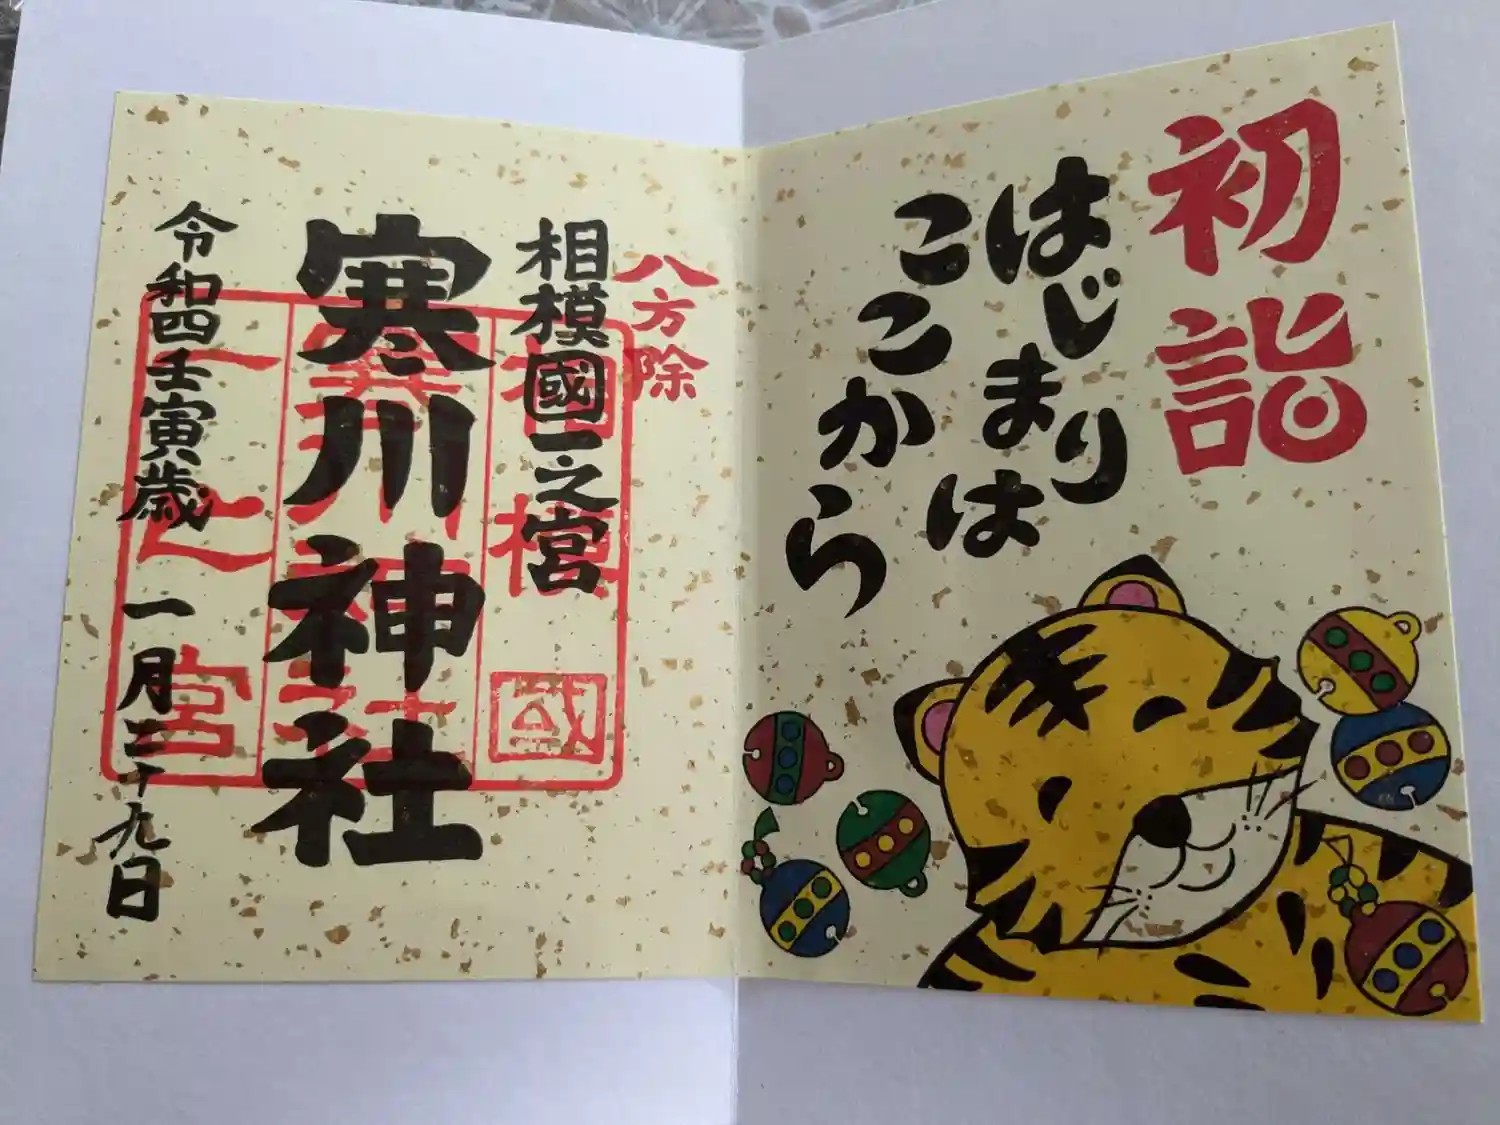 初詣
はじまりは
ここから
八方除
相模國一之宮
寒川神社
令和四壬寅歳 一月二十九日
相模國
寒川神社
一之宮